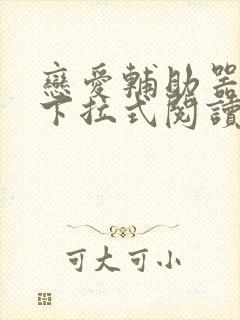 戀愛輔助器
下拉式閱讀
可大可小